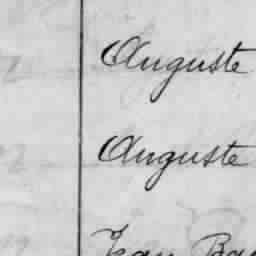 Auguste
Auguste
Jean Ba